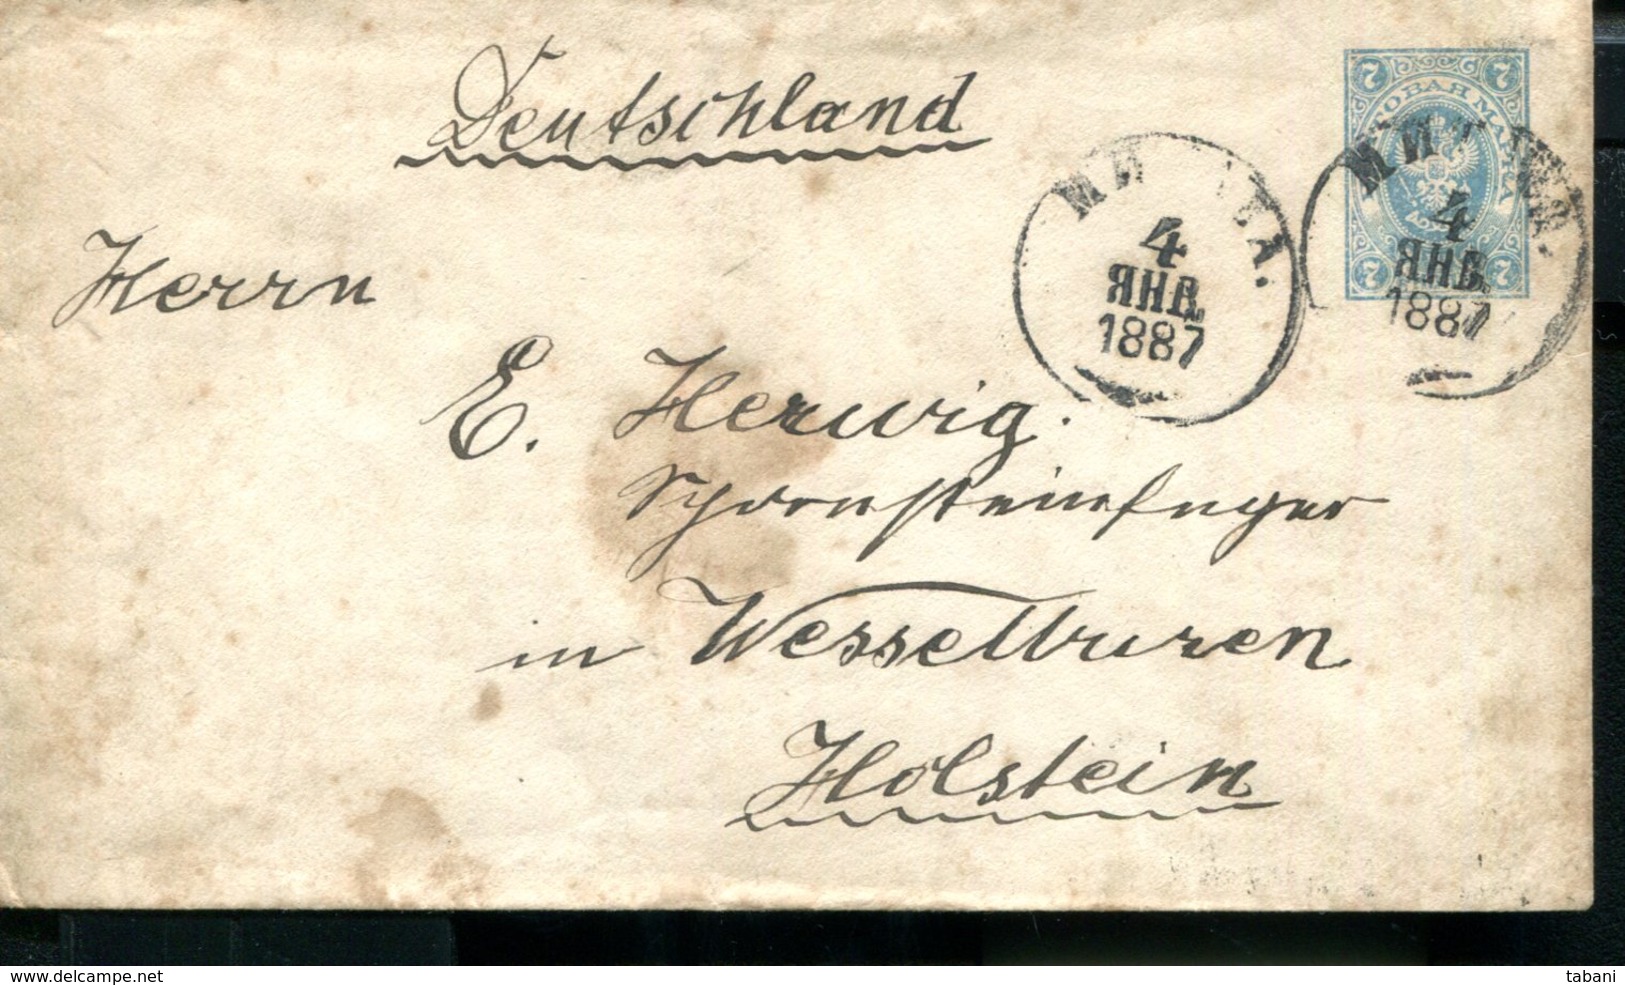 Deutschland
Herrn
E. Herwig.
Schornsteinfeger
in Wesselburen
Holstein
7 7
ПОЧТОВАЯ МАРКА
7 7
МИТАВА.
4
ЯНВ.
1887
МИТАВА.
4
ЯНВ.
1887
delcampe.net
tabani